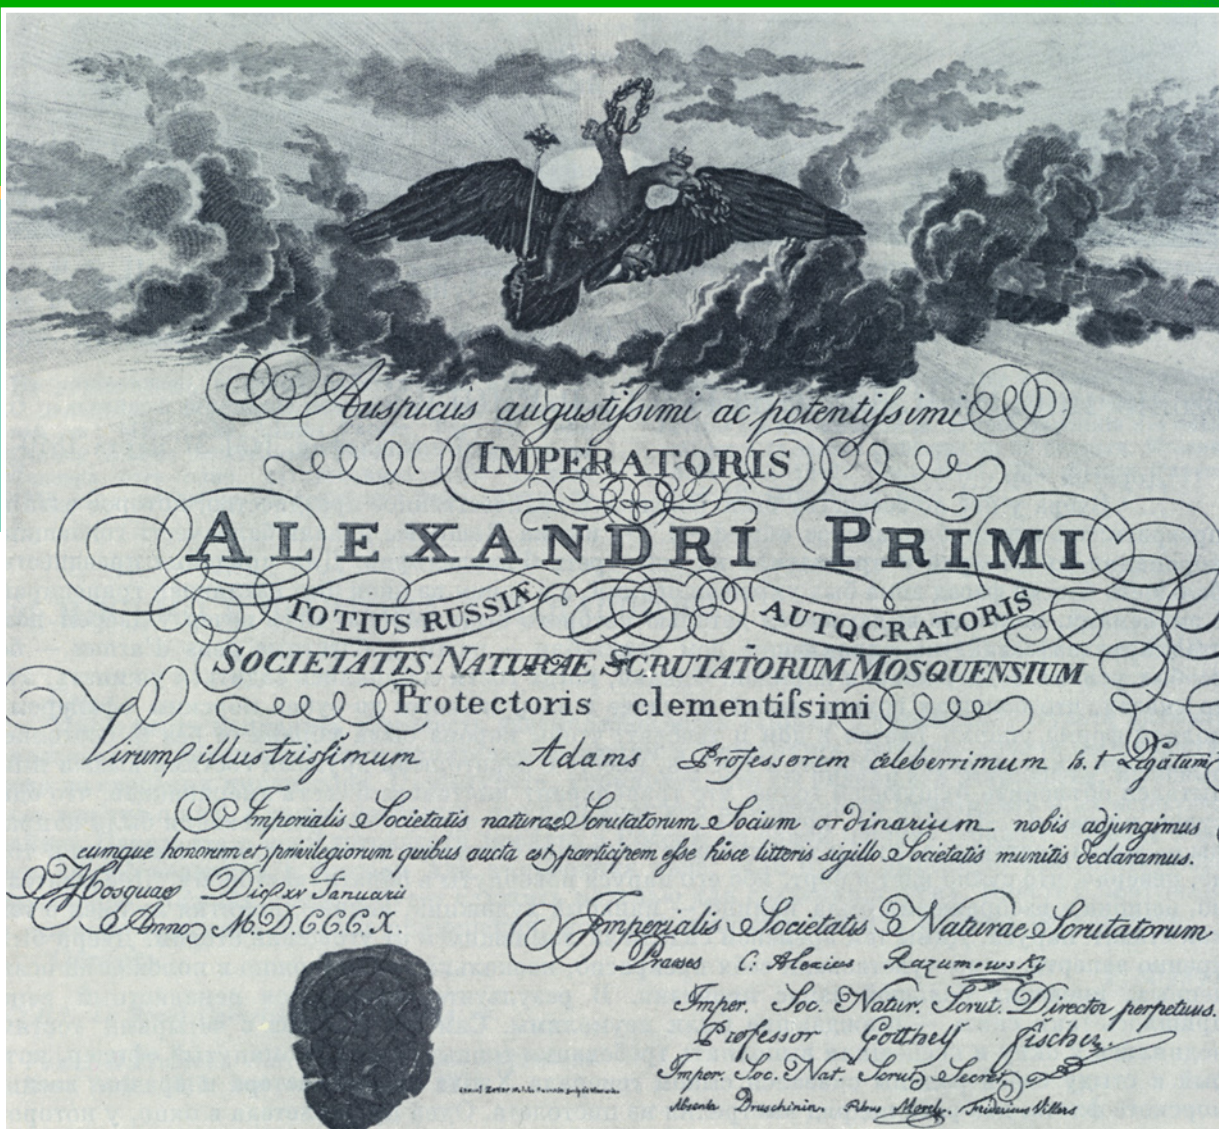 Auspiciis augustiſsimi ac potentiſsimi
IMPERATORIS
ALEXANDRI PRIMI
TOTIUS RUSSIÆ AUTOCRATORIS
SOCIETATIS NATURAE SCRUTATORUM MOSQUENSIUM
Protectoris clementiſsimi
Virum illustriſsimum Adams Professorem celeberrimum h. t
Imperialis Societatis naturae Scrutatorum Socium ordinarium nobis adjungimus
eumque honorum et privilegiorum quibus aucta est, participem eſse hisce litteris sigillo Societatis munitis declaramus.
Mosquae Die xv Januarii
Anno M.D.C.C.C.X.
Imperialis Societatis Naturae Scrutatorum
Praeses C. Alexius Razumowsky
Imper. Soc. Natur. Scrut. Director perpetuus.
Professor Gotthelf Fischer.
Imper. Soc. Nat. Scrut. Secret.
Absente Druschinin. Fridericus Villers